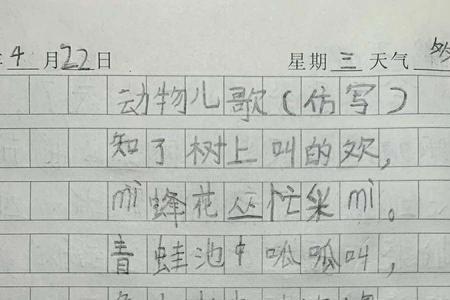 年4月22日 星期三天气
动物儿歌(仿写)
知了树上叫的欢,
mì蜂花丛忙采mì。
青蛙池中呱呱叫,